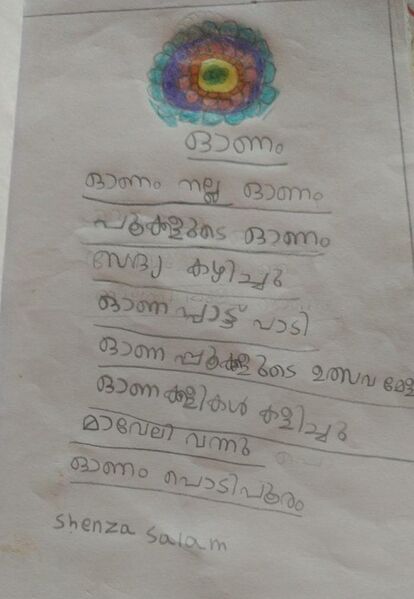 ഓണം
ഓണം നല്ല ഓണം
പൂക്കളുടെ ഓണം
സദ്യ കഴിച്ചു
ഓണ പ്പാട്ട് പാടി
ഓണ പ്പൂക്കളുടെ ഉത്സവ മേള
ഓണക്കളികൾ കളിച്ചു
മാവേലി വന്നു
ഓണം പൊടിപൂരം
shenza salam